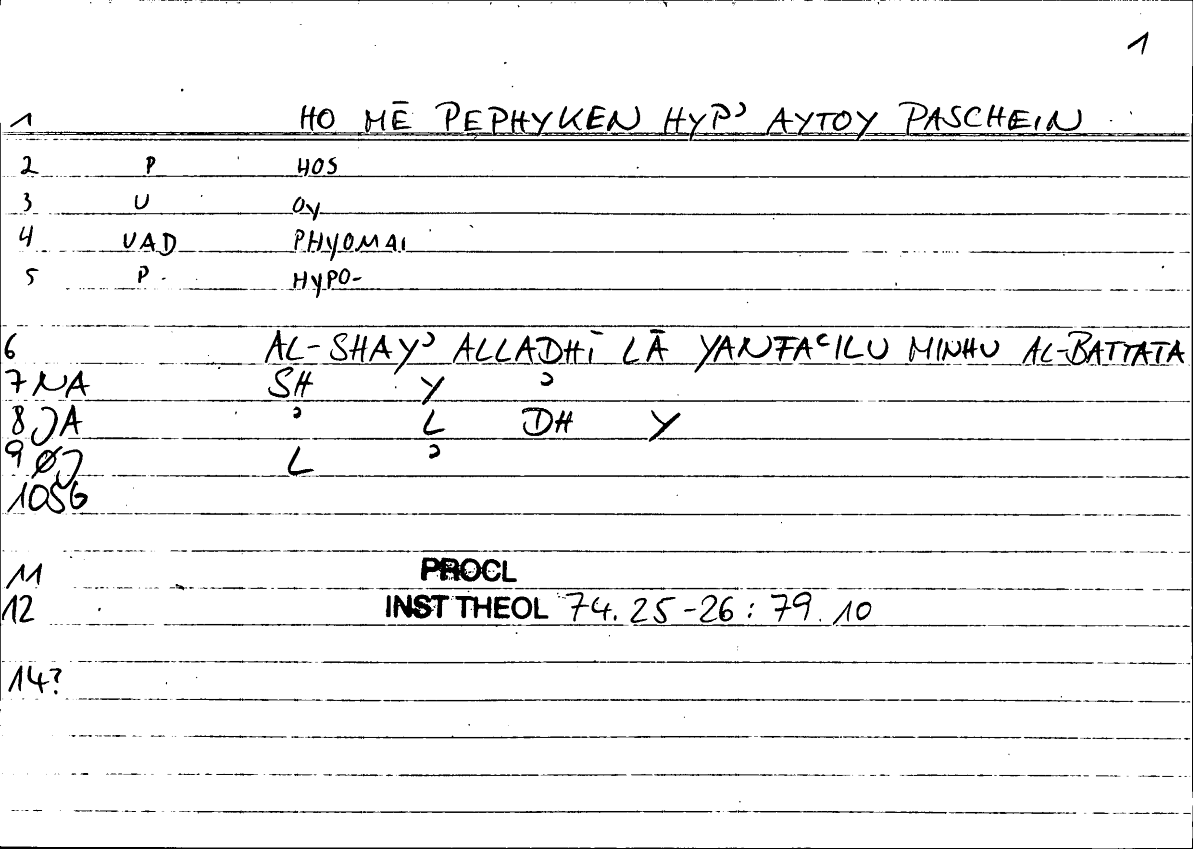 1
1 HO MĒ PEPHYKEN HYPʾ AYTOY PASCHEIN
2 P HOS
3 U OY
4 VAD PHYOMAI
5 P HYPO-
6 AL-SHAYʾ ALLADHĪ LĀ YANFAʿILU MINHU AL-BATTATA
7 NA SH Y ʾ
8 JA ʾ L DH Y
9 ØJ L ʾ
10 SG
11 PROCL
12 INST THEOL 74.25-26: 79.10
14?